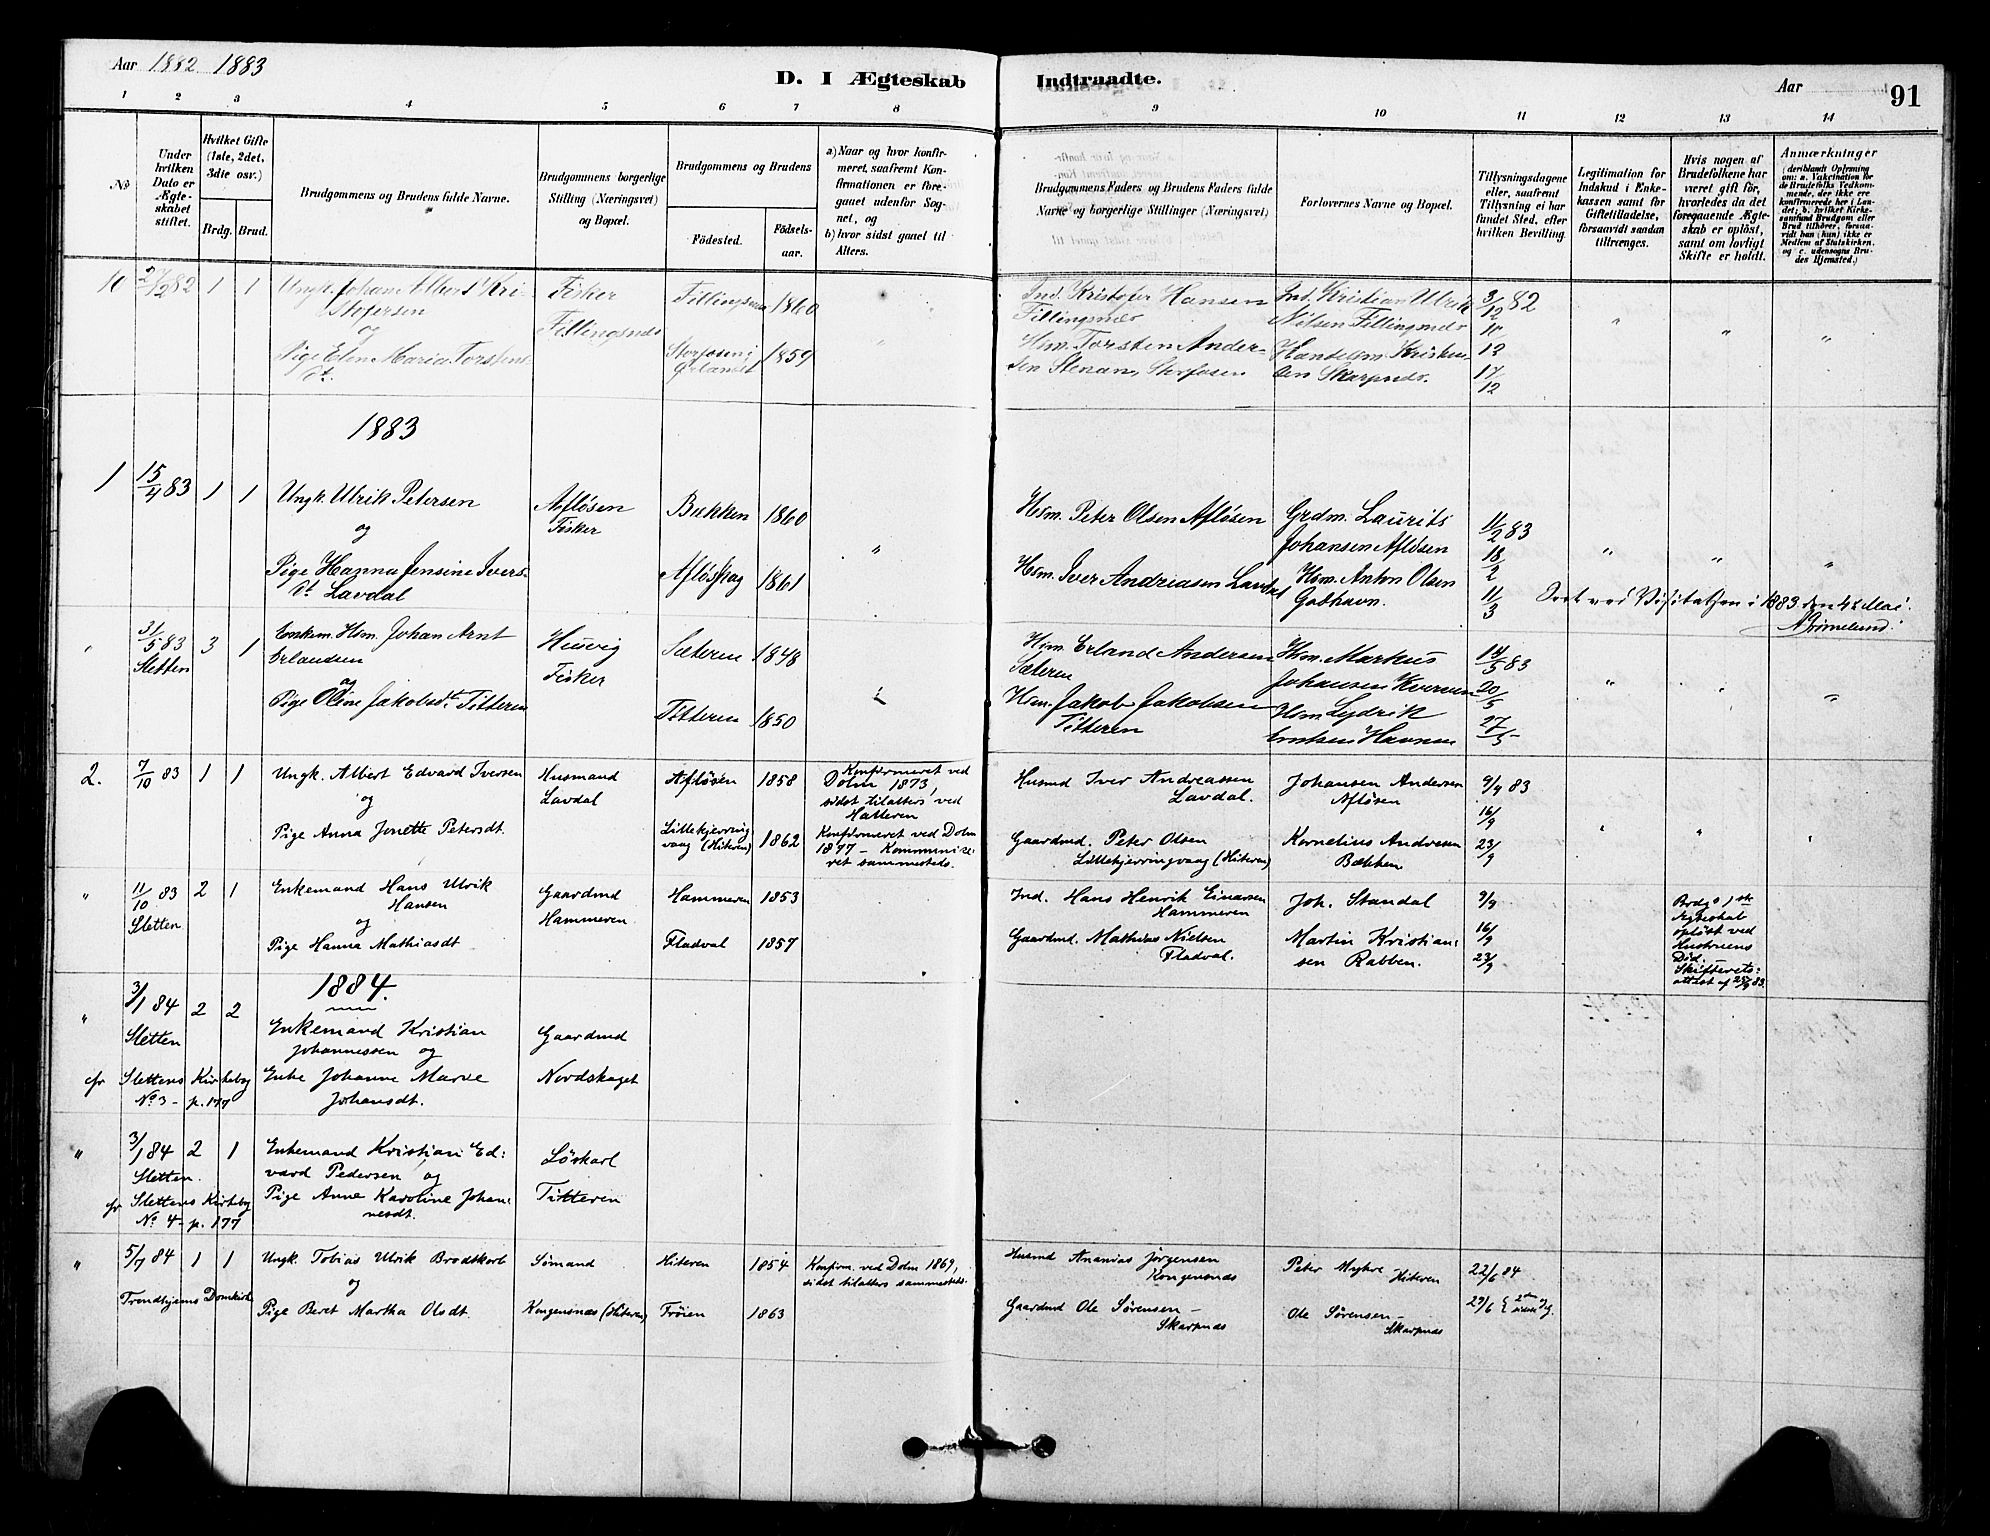 Aar 1882 1883
D. I Ægteskab Indtraadte.
Aar
91
1 2 3 4 5 6 7 8 9 10 11 12 13 14
No
Under hvilken Dato er Ægteskabet stiftet.
Hvilket Gifte (1ste, 2det, 3die osv.)
Brdg. Brud.
Brudgommens og Brudens fulde Navne.
Brudgommens borgerlige Stilling (Næringsvei) og Bopæl.
Brudgommens og Brudens
Födested. Födselsaar.
a) Naar og hvor konfirmeret, saafremt Konfirmationen er foregaaet udenfor Sognet, og
b) hvor sidst gaaet til Alters.
Brudgommens Faders og Brudens Faders fulde Navne og borgerlige Stillinger (Næringsvei)
Forlovernes Navne og Bopæl.
Tillysningsdagene eller, saafremt Tillysning ei har fundet Sted, efter hvilken Bevilling.
Legitimation for Indskud i Enkekassen samt for Giftetilladelse, forsaavidt saadan tiltrænges.
Hvis nogen af Brudefolkene har været gift för, hvorledes da det foregaaende Ægteskab er oplöst, samt om lovligt Skifte er holdt.
Anmærkninger
(deriblandt Oplysning om: a. Vakcination for de Brudefolks Vedkommende, der ikke ere konfirmerede her i Landet; b. hvilket Kirkesamfund Brudgom eller Brud tilhörer, forsaavidt han (hun) ikke er Medlem af Statskirken, og c. udensogns Brudes Hjemsted.)
10 27/12 82 1 1 Ungk. Johan Albert Kristofersen
og
Pige Elen Maria Torstensdt.
Fisker
Fillingsnes
Fillingsnes 1860
Storfosen i Ørlandet 1859
Ind. Kristofer Hansen
Fillingsnes
Hsm. Torsten Andersen Stenan, Storfosen
Ind. Kristian Ulrik
Nilsen Fillingsnes
Handelsm. Kristensen Skarpnes.
3/12 82
10
12
17/12
1883
1 15/4 83 1 1 Ungk. Ulrik Petersen
og
Pige Hanna Jensine Iversdt Lavdal
Afløsen
Fisker
Bekken 1860
1861
Hsm. Peter Olsen Afløsen
Hsm. Iver Andreasen Lavdal
Grdm. Laurits
Johansen Afløsen
Hsm. Anton Olsen
Gathavn.
11/2 83
18/2
11/3
Seet ved Visitatsen i 1883 den 4de Mai.
" 31/5 83 Sletten 3 1 Enkem. Hsm. Johan Arnt
Erlandsen
og
Pige Oline Jakobsdt. Titteren
Husvig
Fisker
Sæteren 1848
Titteren 1850
Hsm. Erland Andersen
Sæteren
Hsm. Jakob Jakobsen
Titteren
Hsm. Markus
Johansen Kvernen
Hsm. Lydrik
Erntsen Havnen
14/5 83
20/5
27/5
2. 7/10 83 1 1 Ungk. Albert Edvard Iversen
og
Pige Anna Jonette Petersdt.
Husmand
Lavdal
Afløsen 1858
Lillekjerringvaag (Hiteren) 1862
Konfirmeret ved
Dolm 1873,
sidst tilalters ved
Hatteren
Konfirmeret ved Dolm
1877 – Kommuniceret sammesteds.
Husmd Iver Andreassen
Lavdal.
Gaardmd. Peter Olsen
Lillekjerringvaag (Hiteren)
Johansen Andersen
Afløsen
Kornelius Andresen
Bækken
9/9 83
16/9
23/9
" 11/10 83 Sletten 2 1 Enkemand Hans Ulrik
Hansen
og
Pige Hanna Mathiasdt
Gaardmd
Hammeren
Hammeren 1853
Fladval 1857
Ind. Hans Henrik Einarsen
Hammeren
Gaardmd. Mathias Nielsen
Fladval.
Joh. Standal
Martin Kristiansen Rabben.
9/9
16/9
23/9
Brdgs 1ste
Ægteskab
opløst ved
Hustruens
Død. –
Skifterets-
attest af 25/9 83.
1884.
" 3/1 84 Sletten 2 2
Enkemand Kristian
Johannessen og
Enke Johanne Marie
Johansdt.
Gaardmd
Nordskaget
cfr Slettens Kirkebog
No 3 – p. 177
" 3/1 84 Sletten. 2 1 Enkemand Kristian Edvard Pedersen og
Pige Anne Karoline Johannesdt.
Löskarl
Titteren
cfr Slettens Kirkebog
No 4 – p. 177
" 5/7 84 1 1 Ungk. Tobias Ulrik Brodtkorb
og
Pige Beret Martha Olsdt.
Trondhjems Domkirke
Sömand
Kongensnæs (Hiteren)
Hiteren 1854
Frøien 1863
Konfirm. ved Dolm 1869,
sidst tilalters sammesteds.
Husmd Ananias Jørgensen
Kongensnæs
Gaardmd Ole Sørensen –
Skarpnæs
Peter Myhre Hiteren
Ole Sørensen –
Skarpnæs
22/6 84
29/6 { 2den og sidste G.